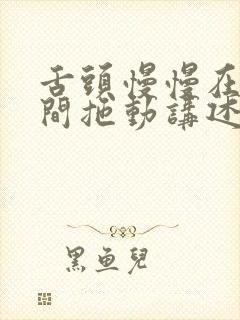 舌頭慢慢在
間拖動講述
黑鱼兒